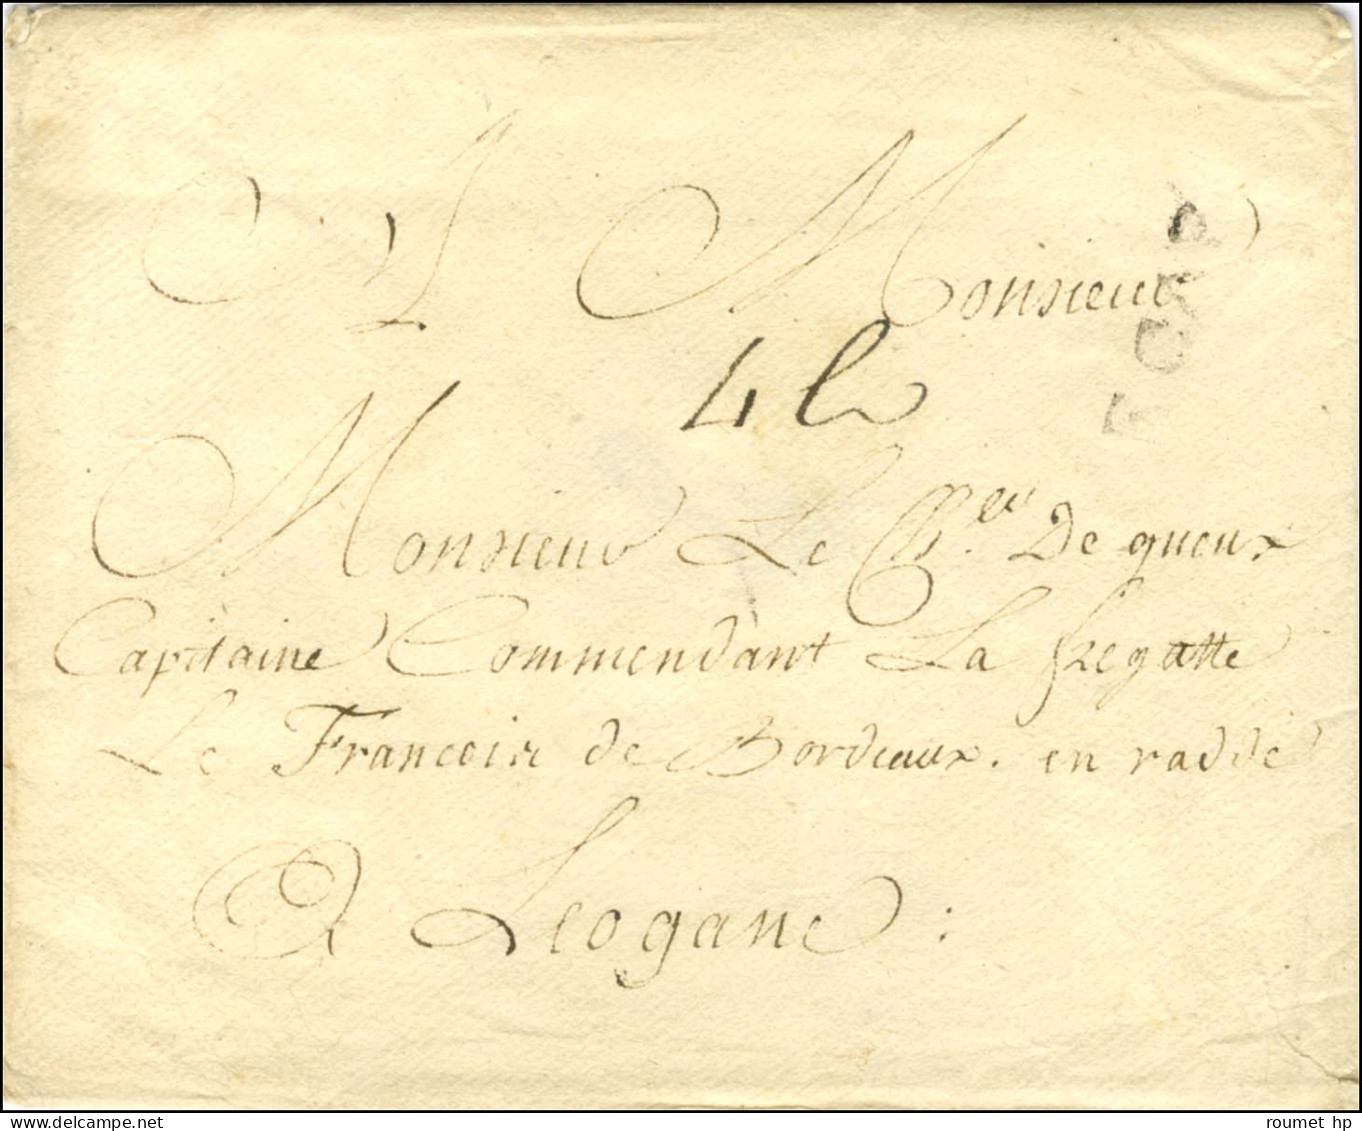 A Monsieur
LE CAP
4 L
Monsieur Le Ch.er De gueux
Capitaine Commendant La fregatte
Le Francois de Bordeaux. en radde
A Leogane :
www.delcampe.net
roumet hp